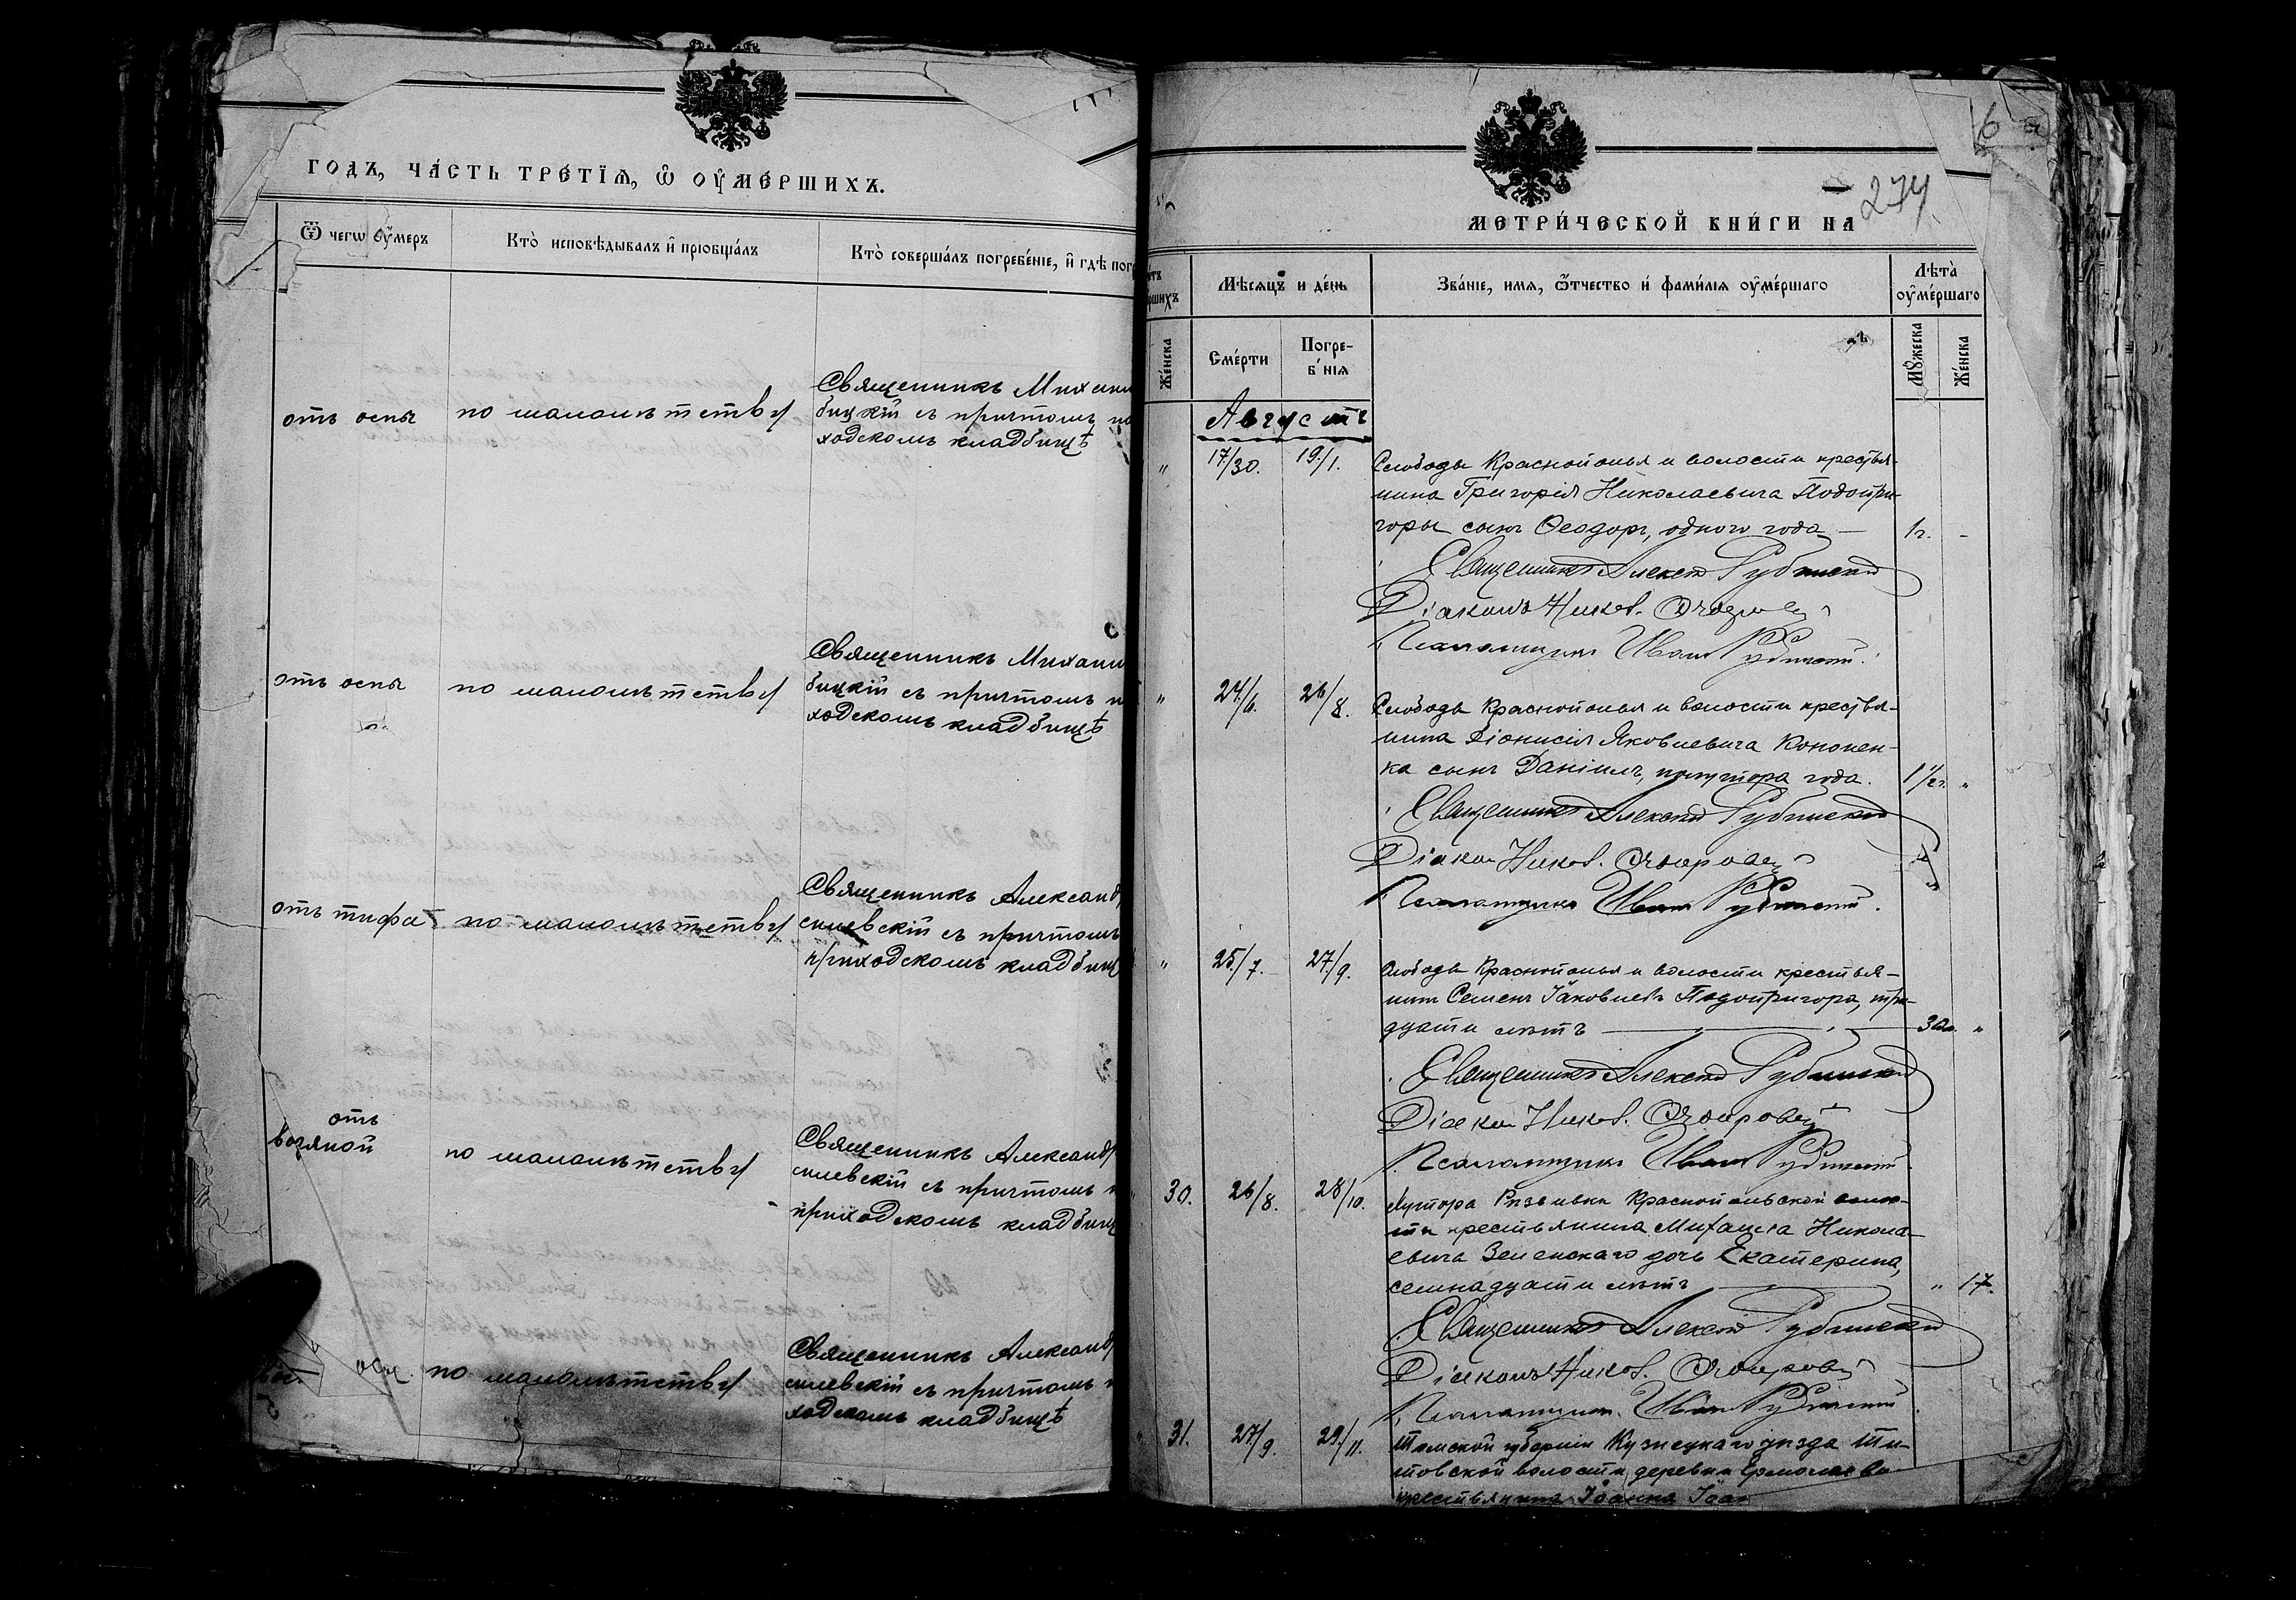 ГОДЪ, ЧА́СТЬ ТРЕ́ТЇѦ, Ѡ҆ ОУ҆МЕ́РШИХЪ.
Ѿ чегѡ оу҆́меръ
Кто̀ исповѣ́дывалъ и҆ прїѡбща́лъ
Кто̀ соверша́лъ погребе́нїе, и҆ гдѣ̀ погр
отъ оспы
по малолѣтству
Священникъ Михаи
бицкій съ причтомъ
ходскомъ кладбищѣ
отъ оспы
по малолѣтству
Священникъ Михаи
бицкій съ причтомъ
ходскомъ кладбищѣ
отъ тифа
по малолѣтству
Священникъ Александ
силевскій съ причтомъ
приходскомъ кладбищ
отъ
водяной
по малолѣтству
Священникъ Александ
силевскій съ причтомъ
приходскомъ кладбищ
по малолѣтству
Священникъ Александ
силевскій съ причтомъ
ходскомъ кладбищѣ
6
274
МЕТРИ́ЧЕСКОЙ КНИ́ГИ НА
ршихъ
Мѣ́сѧцъ и де́нь
Зва́нїе, имѧ, ѻ҆́тчество и҆ фами́лїѧ оу҆ме́ршаго
Лѣта̀
оу҆ме́ршаго
Же́нска
Сме́рти
Погре-
бе́нїѧ
Мꙋ́жеска
Же́нска
Августъ
" 17/30. 19/1. Слободы Краснополья и волости крестья-
нина Григорія Николаевича Подопри-
горы сынъ Ѳеодоръ, одного года — 1г. -
Священникъ Александ Рубинскій
Діаконъ Никол.
Псаломщикъ Иван Рубинскій.
" 24/6. 26/8. Слободы Краснополья и волости крестья-
нина Діонисія Яковлевича Кононен-
ка сынъ Даніилъ, полутора года. 1 1/2 г. "
Священникъ Александ Рубинскій
Діакон Никол.
Псаломщикъ Иван Рубинскій.
" 25/7. 27/9. Слободы Краснополья и волости крестья-
нинъ Семенъ Іаковлевъ Подопригора, три-
дцати лѣтъ — 30л. "
Священникъ Александ Рубинскій
Діакон Никол.
Псаломщикъ Иван Рубинскій
30. 26/8. 28/10. Хутора Краснопольской воло-
сти крестьянина Михаила Никола-
евича Зеленскаго дочь Екатерина,
семнадцати лѣтъ — " 17.
Священникъ Александ Рубинскій
Діаконъ Никол.
Псаломщик. Иван Рубинскій
31. 27/9. 29/11. Томской губерніи Кузнецкаго уѣзда Ти-
товской волости деревни Ермолаева
крестьянина Іоанна Іоан